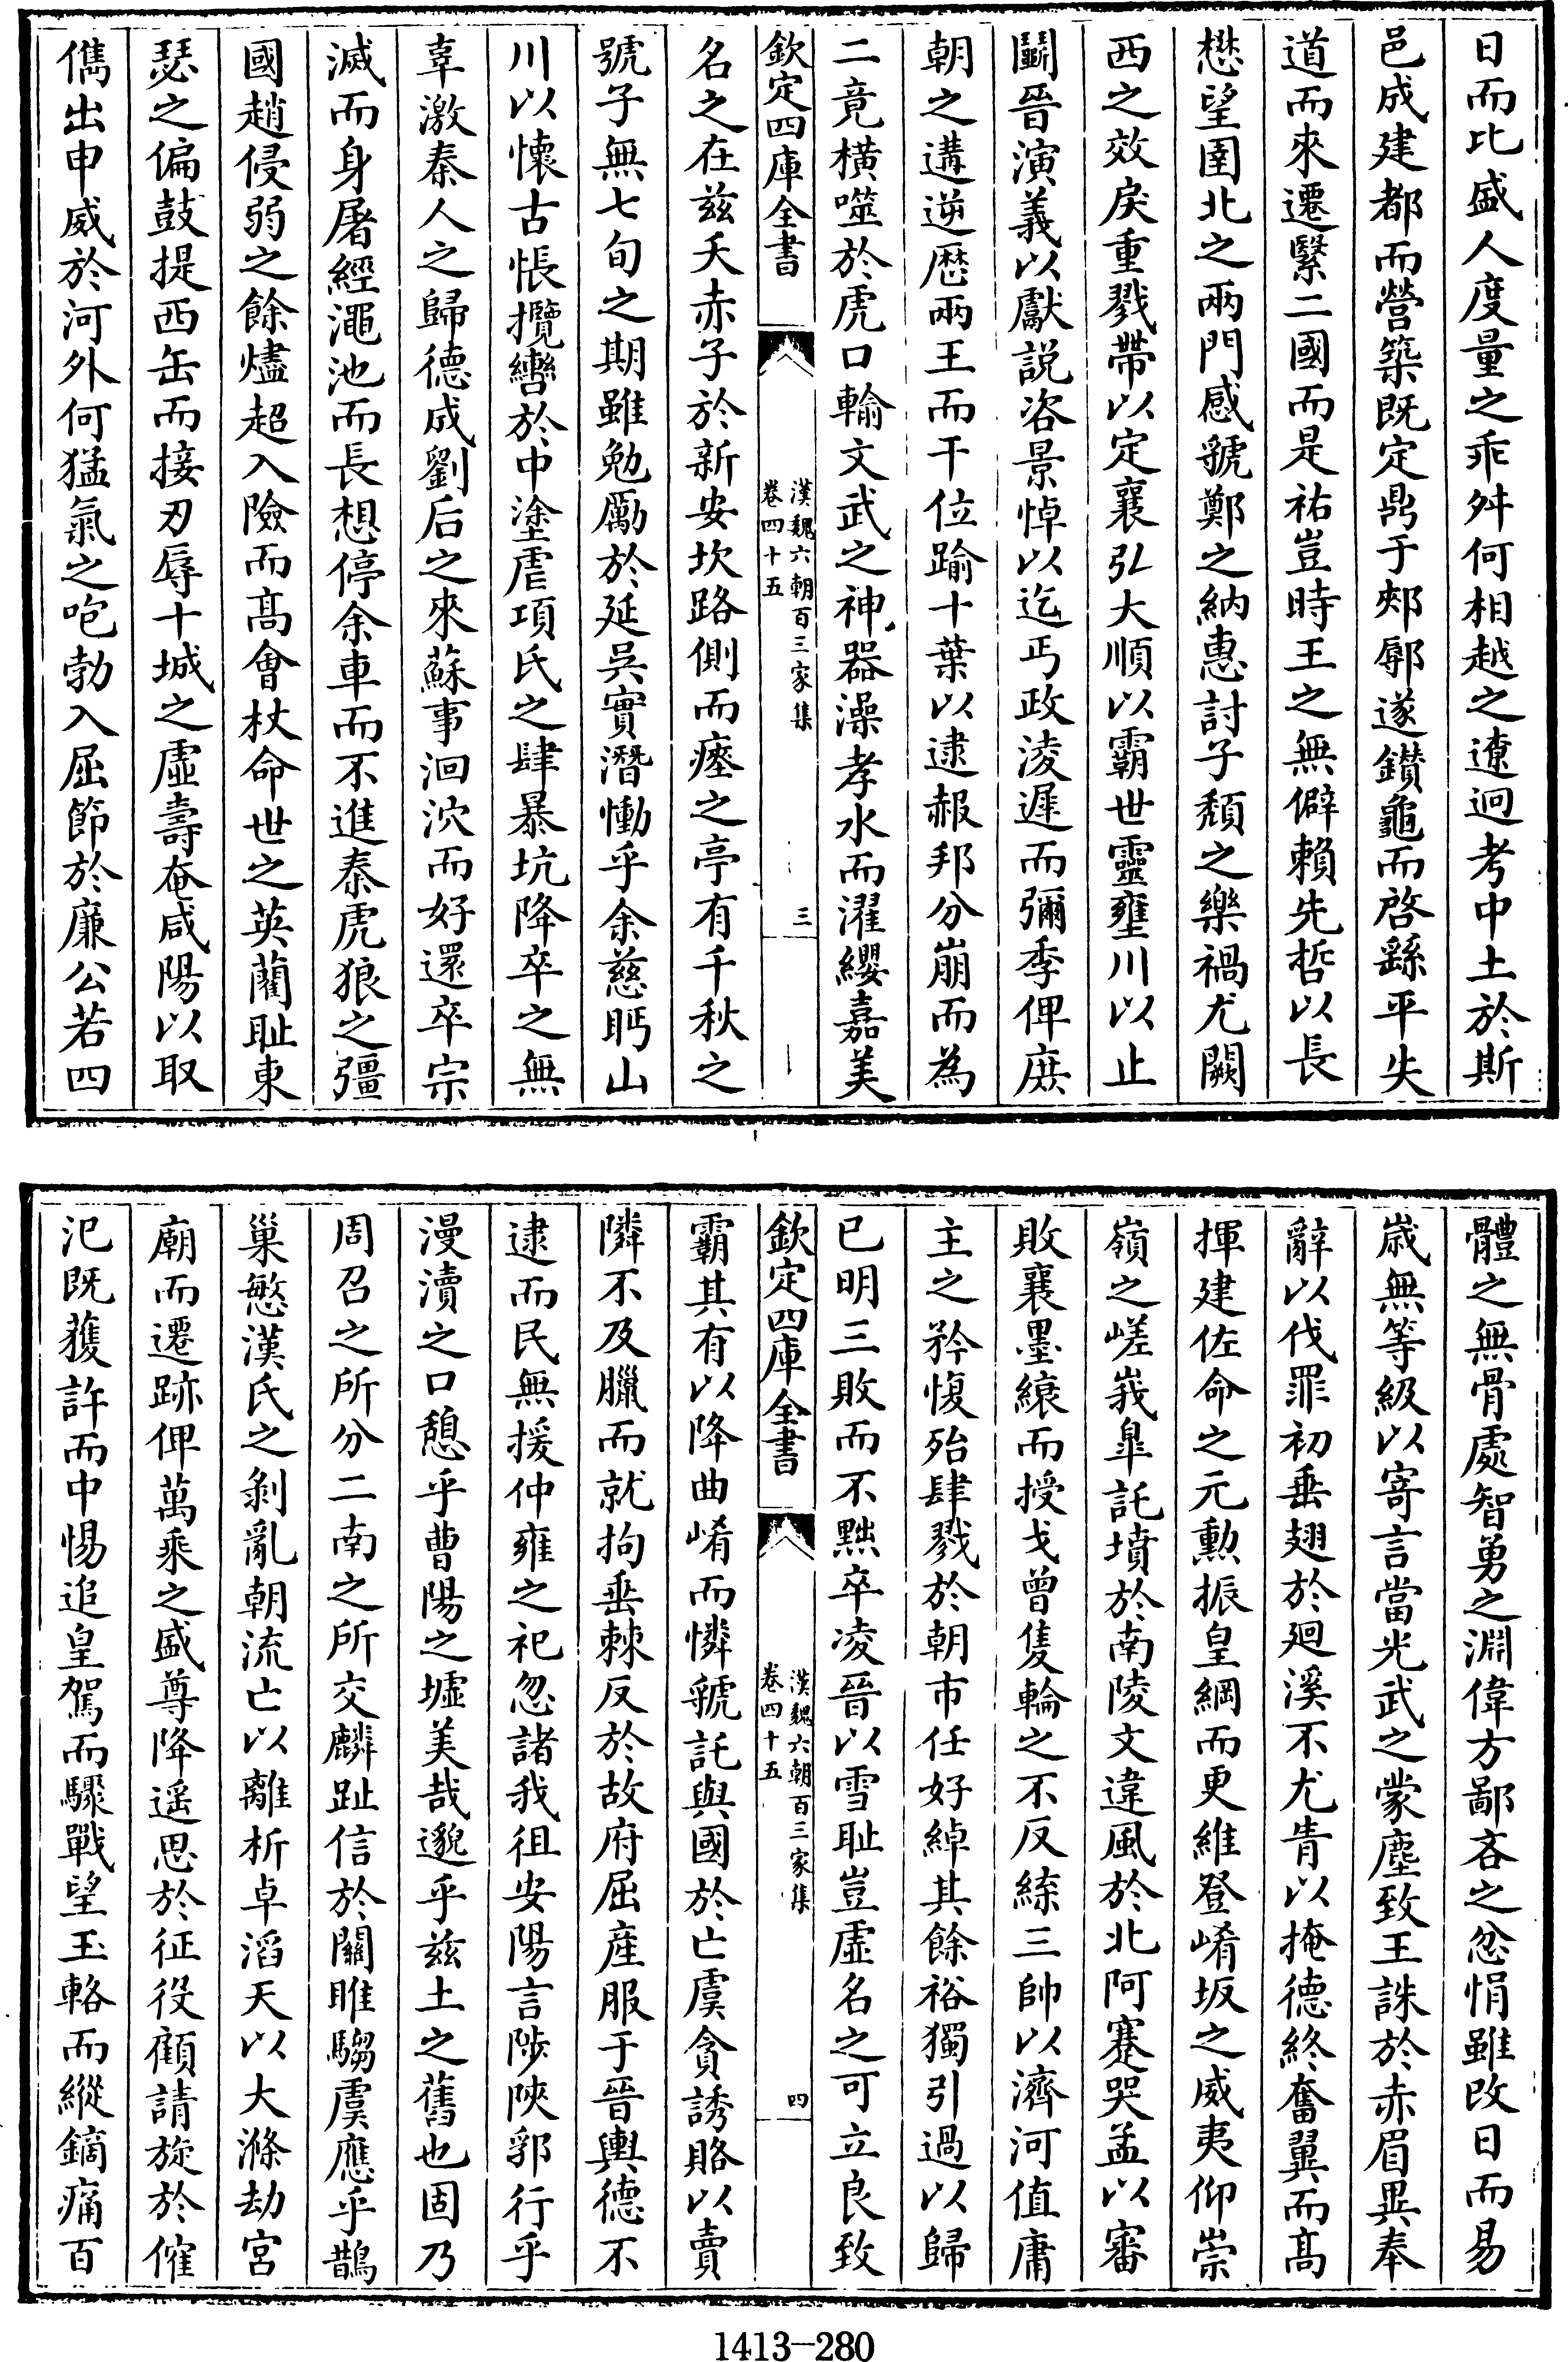 日而比盛人度量之乖舛何相越之遼逈考中土於斯
邑成建都而營築既定鼎于郟鄏遂鑚龜而啓繇平失
道而來遷繄二國而是祐豈時王之無僻賴先哲以長
懋望圉北之兩門感虢鄭之納惠討子頽之樂禍尤闕
西之效戾重戮帶以定襄弘大順以霸世靈壅川以止
鬭晉演義以獻說咨景悼以迄丐政淩遲而彌季俾庶
朝之遘逆歷兩王而干位踰十葉以逮赧邦分崩而為
二竟橫噬於虎口輸文武之神器澡孝水而濯纓嘉美
欽定四庫全書
漢魏六朝百三家集
卷四十五
三
名之在兹夭赤子於新安坎路側而瘞之亭有千秋之
號子無七旬之期雖勉厲於延吳實潛慟乎余慈眄山
川以懷古悵攬轡於中塗虐項氏之肆暴坑降卒之無
辜激秦人之歸德成劉后之來蘇事洄泬而好還卒宗
滅而身屠經澠池而長想停余車而不進秦虎狼之彊
國趙侵弱之餘燼超入險而高會杖命世之英藺耻東
瑟之偏鼓提西缶而接刃辱十城之虛壽奄咸陽以取
儁出申威於河外何猛氣之咆勃入屈節於廉公若四
體之無骨處智勇之淵偉方鄙吝之忿悁雖改日而易
歳無等級以寄言當光武之蒙塵致王誅於赤眉異奉
辭以伐罪初垂翅於廻溪不尤眚以掩德終奮翼而高
揮建佐命之元勲振皇綱而更維登崤坂之威夷仰崇
嶺之嵯峩臯託墳於南陵文違風於北阿蹇哭孟以審
敗襄墨縗而授戈曾隻輪之不反綊三帥以濟河值庸
主之矜愎殆肆戮於朝市任好綽其餘裕獨引過以歸
已明三敗而不黜卒凌晉以雪耻豈虛名之可立良致
欽定四庫全書
漢魏六朝百三家集
卷四十五
四
霸其有以降曲崤而憐虢託與國於亡虞貪誘賂以賣
隣不及臘而就拘垂棘反於故府屈産服于晉輿德不
逮而民無援仲雍之祀忽諸我徂安陽言陟陝郛行乎
漫瀆之口憩乎曹陽之墟美哉邈乎兹土之舊也固乃
周召之所分二南之所交麟趾信於關雎騶虞應乎鵲
巢愍漢氏之剝亂朝流亡以離析卓滔天以大滌劫宮
廟而遷跡俾萬乘之盛尊降遥思於征役顧請旋於傕
汜既獲許而中惕追皇駕而驟戰望玉輅而縱鏑痛百
1413—280